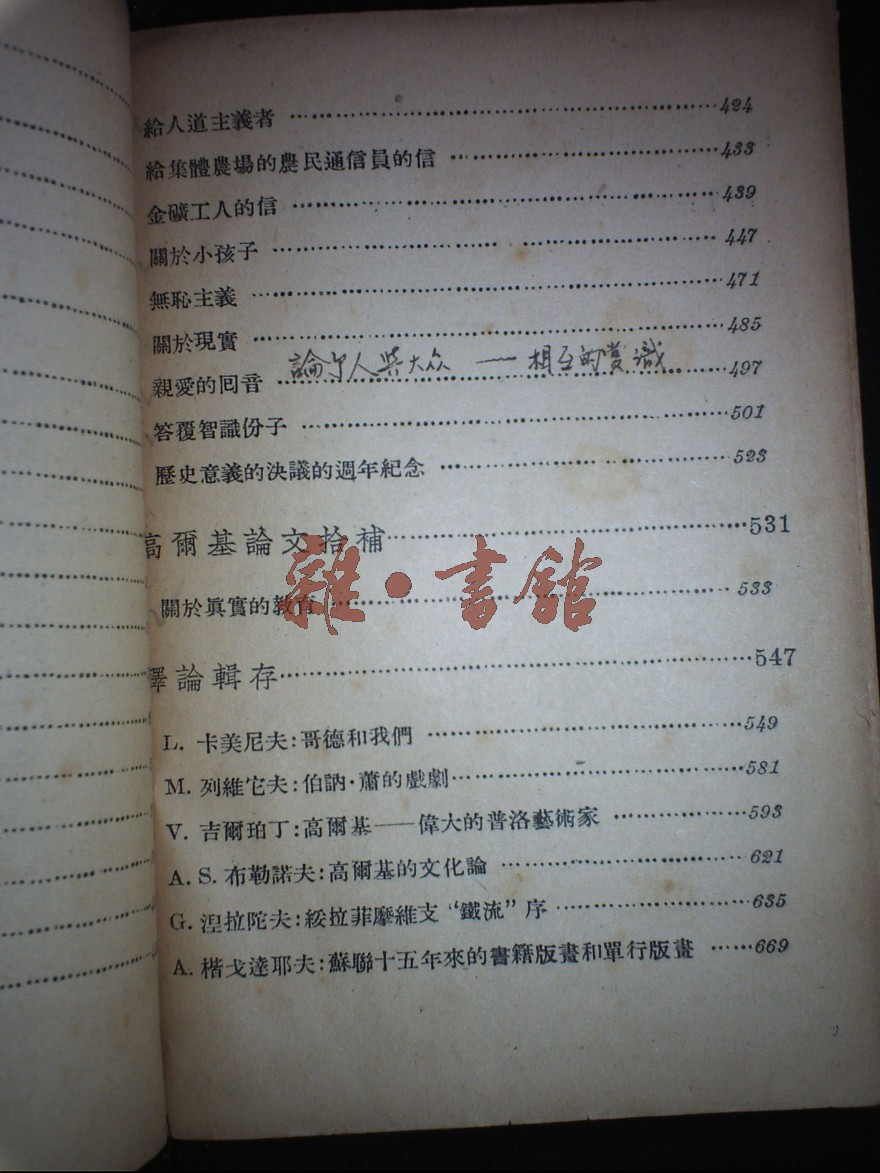 給人道主義者 424
給集體農場的農民通信員的信 433
金礦工人的信 439
關於小孩子 447
無恥主義 471
關於現實 485
論 人與大众 —— 相互的赏識
親愛的回音 497
答覆智識份子 501
歷史意義的決議的週年紀念 523
高爾基論文拾補 531
雜·書館
關於真實的教育 533
譯論輯存 547
L. 卡美尼夫:哥德和我們 549
M. 列維它夫:伯訥·蕭的戲劇 581
V. 吉爾珀丁:高爾基——偉大的普洛藝術家 593
A. S. 布勒諾夫:高爾基的文化論 621
G. 涅拉陀夫:綏拉菲摩維支“鐵流”序 635
A. 楷戈達耶夫:蘇聯十五年來的書籍版畫和單行版畫 669